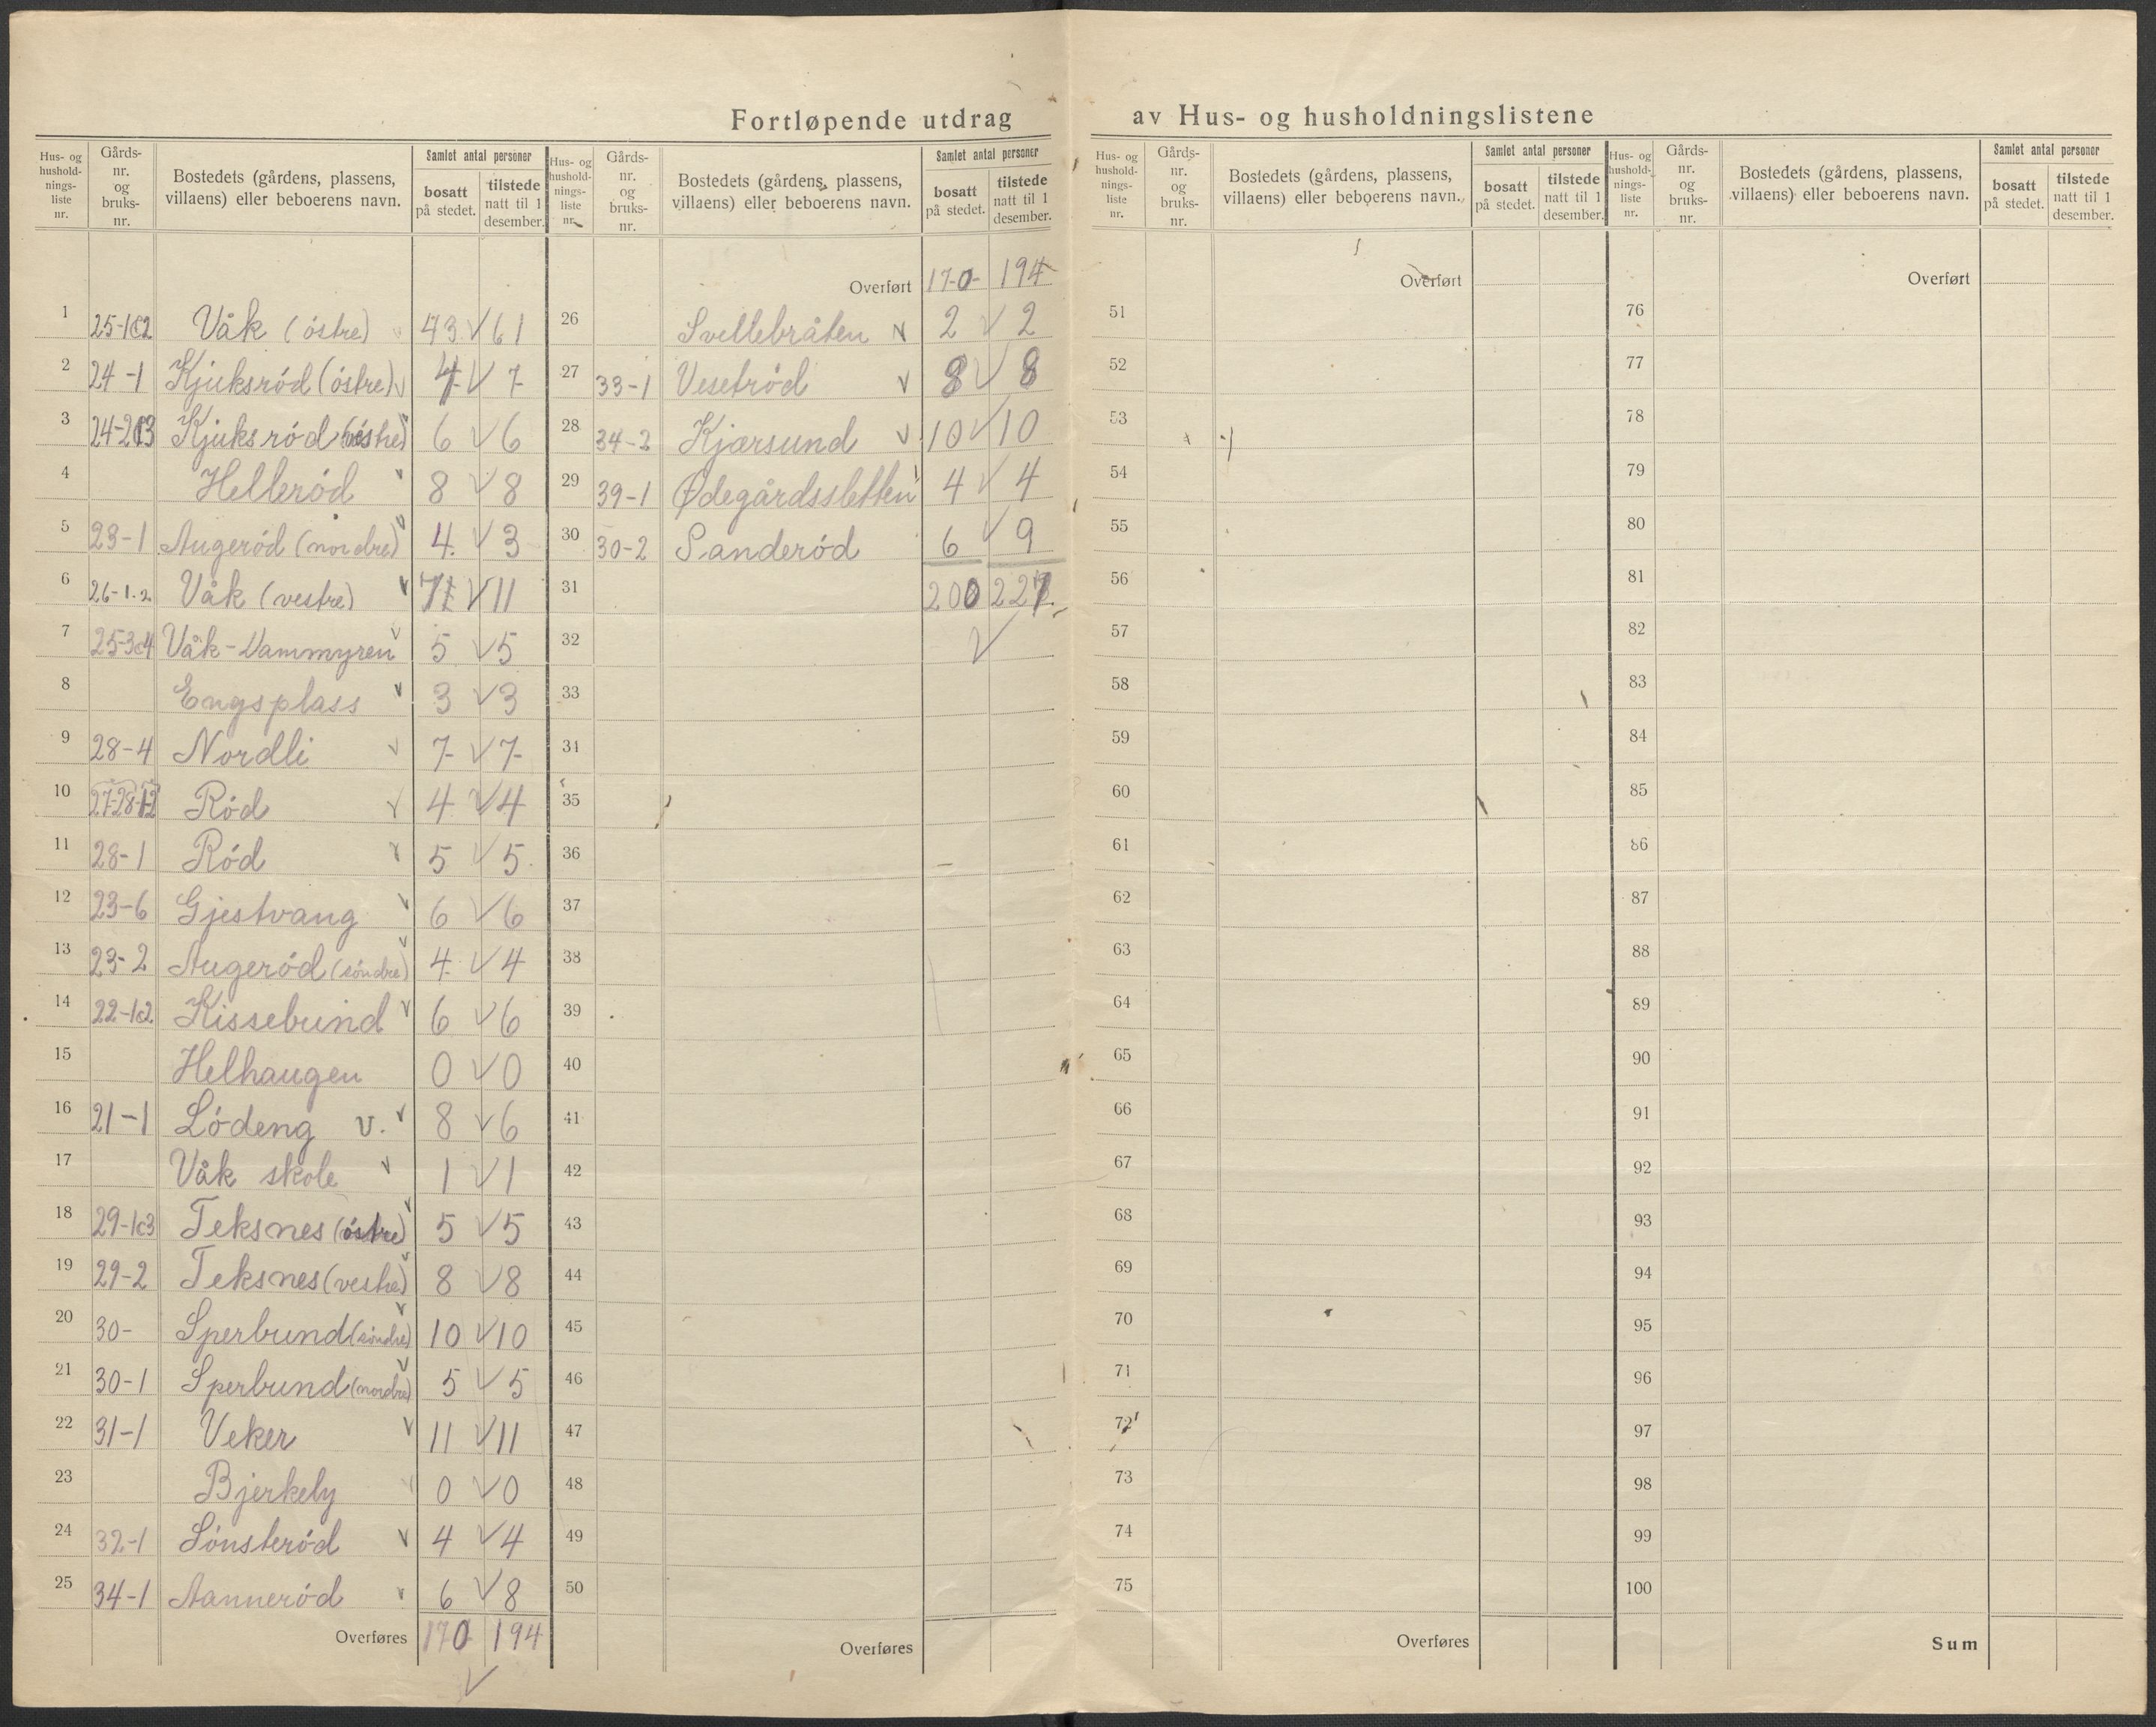 Fortløpende utdrag av Hus- og husholdningslistene
Hus- og hushold-nings-liste nr. Gårds-nr. og bruks-nr. Bostedets (gårdens, plassens, villaens) eller beboerens navn. Samlet antal personer bosatt på stedet. tilstede natt til 1 desember.
1 25-1&2 Våk (östre) 43 61
2 24-1 Kjuksröd (östre) 7
3 Kjuksröd 6 6
4 Helleröd 8 8
5 23-1 Augeröd (nordre) 4 3
6 26-1.2 Våk (vestre) 11
7 25-3&4 Våk-Dammyren 5 5
8 Engsplass 3 3
9 28-4 Nordli 7 7
10 Röd 4 4
11 28-1 Röd 5 5
12 23-6 Gjestvang 6 6
13 23-2 Augeröd (söndre) 4 4
14 22-1&2 Kissebund 6 6
15 Helhaugen 0 0
16 21-1 Lödeng v. 8 6
17 Våk skole 1 1
18 29-1&3 Teksnes (östre) 5 5
19 29-2 Teksnes (vestre) 8 8
20 30- Sperbund (söndre) 10 10
21 30-1 Sperbund (nordre) 5 5
22 31-1 Veker 11 11
23 Bjerkely 0 0
24 32-1 Sönsteröd 4 4
25 34-1 Aanneröd 6 8
Overføres 170 194
Hus- og hushold-nings-liste nr. Gårds-nr. og bruks-nr. Bostedets (gårdens, plassens, villaens) eller beboerens navn. Samlet antal personer bosatt på stedet. tilstede natt til 1 desember.
Overført 170 194
26 Svellebråten 2 2
27 33-1 Vesetröd 8 8
28 34-2 Kjærsund 10 10
29 39-1 Ødegårdssletten 4 4
30 30-2 Sanderöd 6 9
31 200 227
32
33
34
35
36
37
38
39
40
41
42
43
44
45
46
47
48
49
50
Overføres
Hus- og hushold-nings-liste nr. Gårds-nr. og bruks-nr. Bostedets (gårdens, plassens, villaens) eller beboerens navn. Samlet antal personer bosatt på stedet. tilstede natt til 1 desember.
Overført
51
52
53
54
55
56
57
58
59
60
61
62
63
64
65
66
67
68
69
70
71
72
73
74
75
Overføres
Hus- og hushold-nings-liste nr. Gårds-nr. og bruks-nr. Bostedets (gårdens, plassens, villaens) eller beboerens navn. Samlet antal personer bosatt på stedet. tilstede natt til 1 desember.
Overført
76
77
78
79
80
81
82
83
84
85
86
87
88
89
90
91
92
93
94
95
96
97
98
99
100
Sum